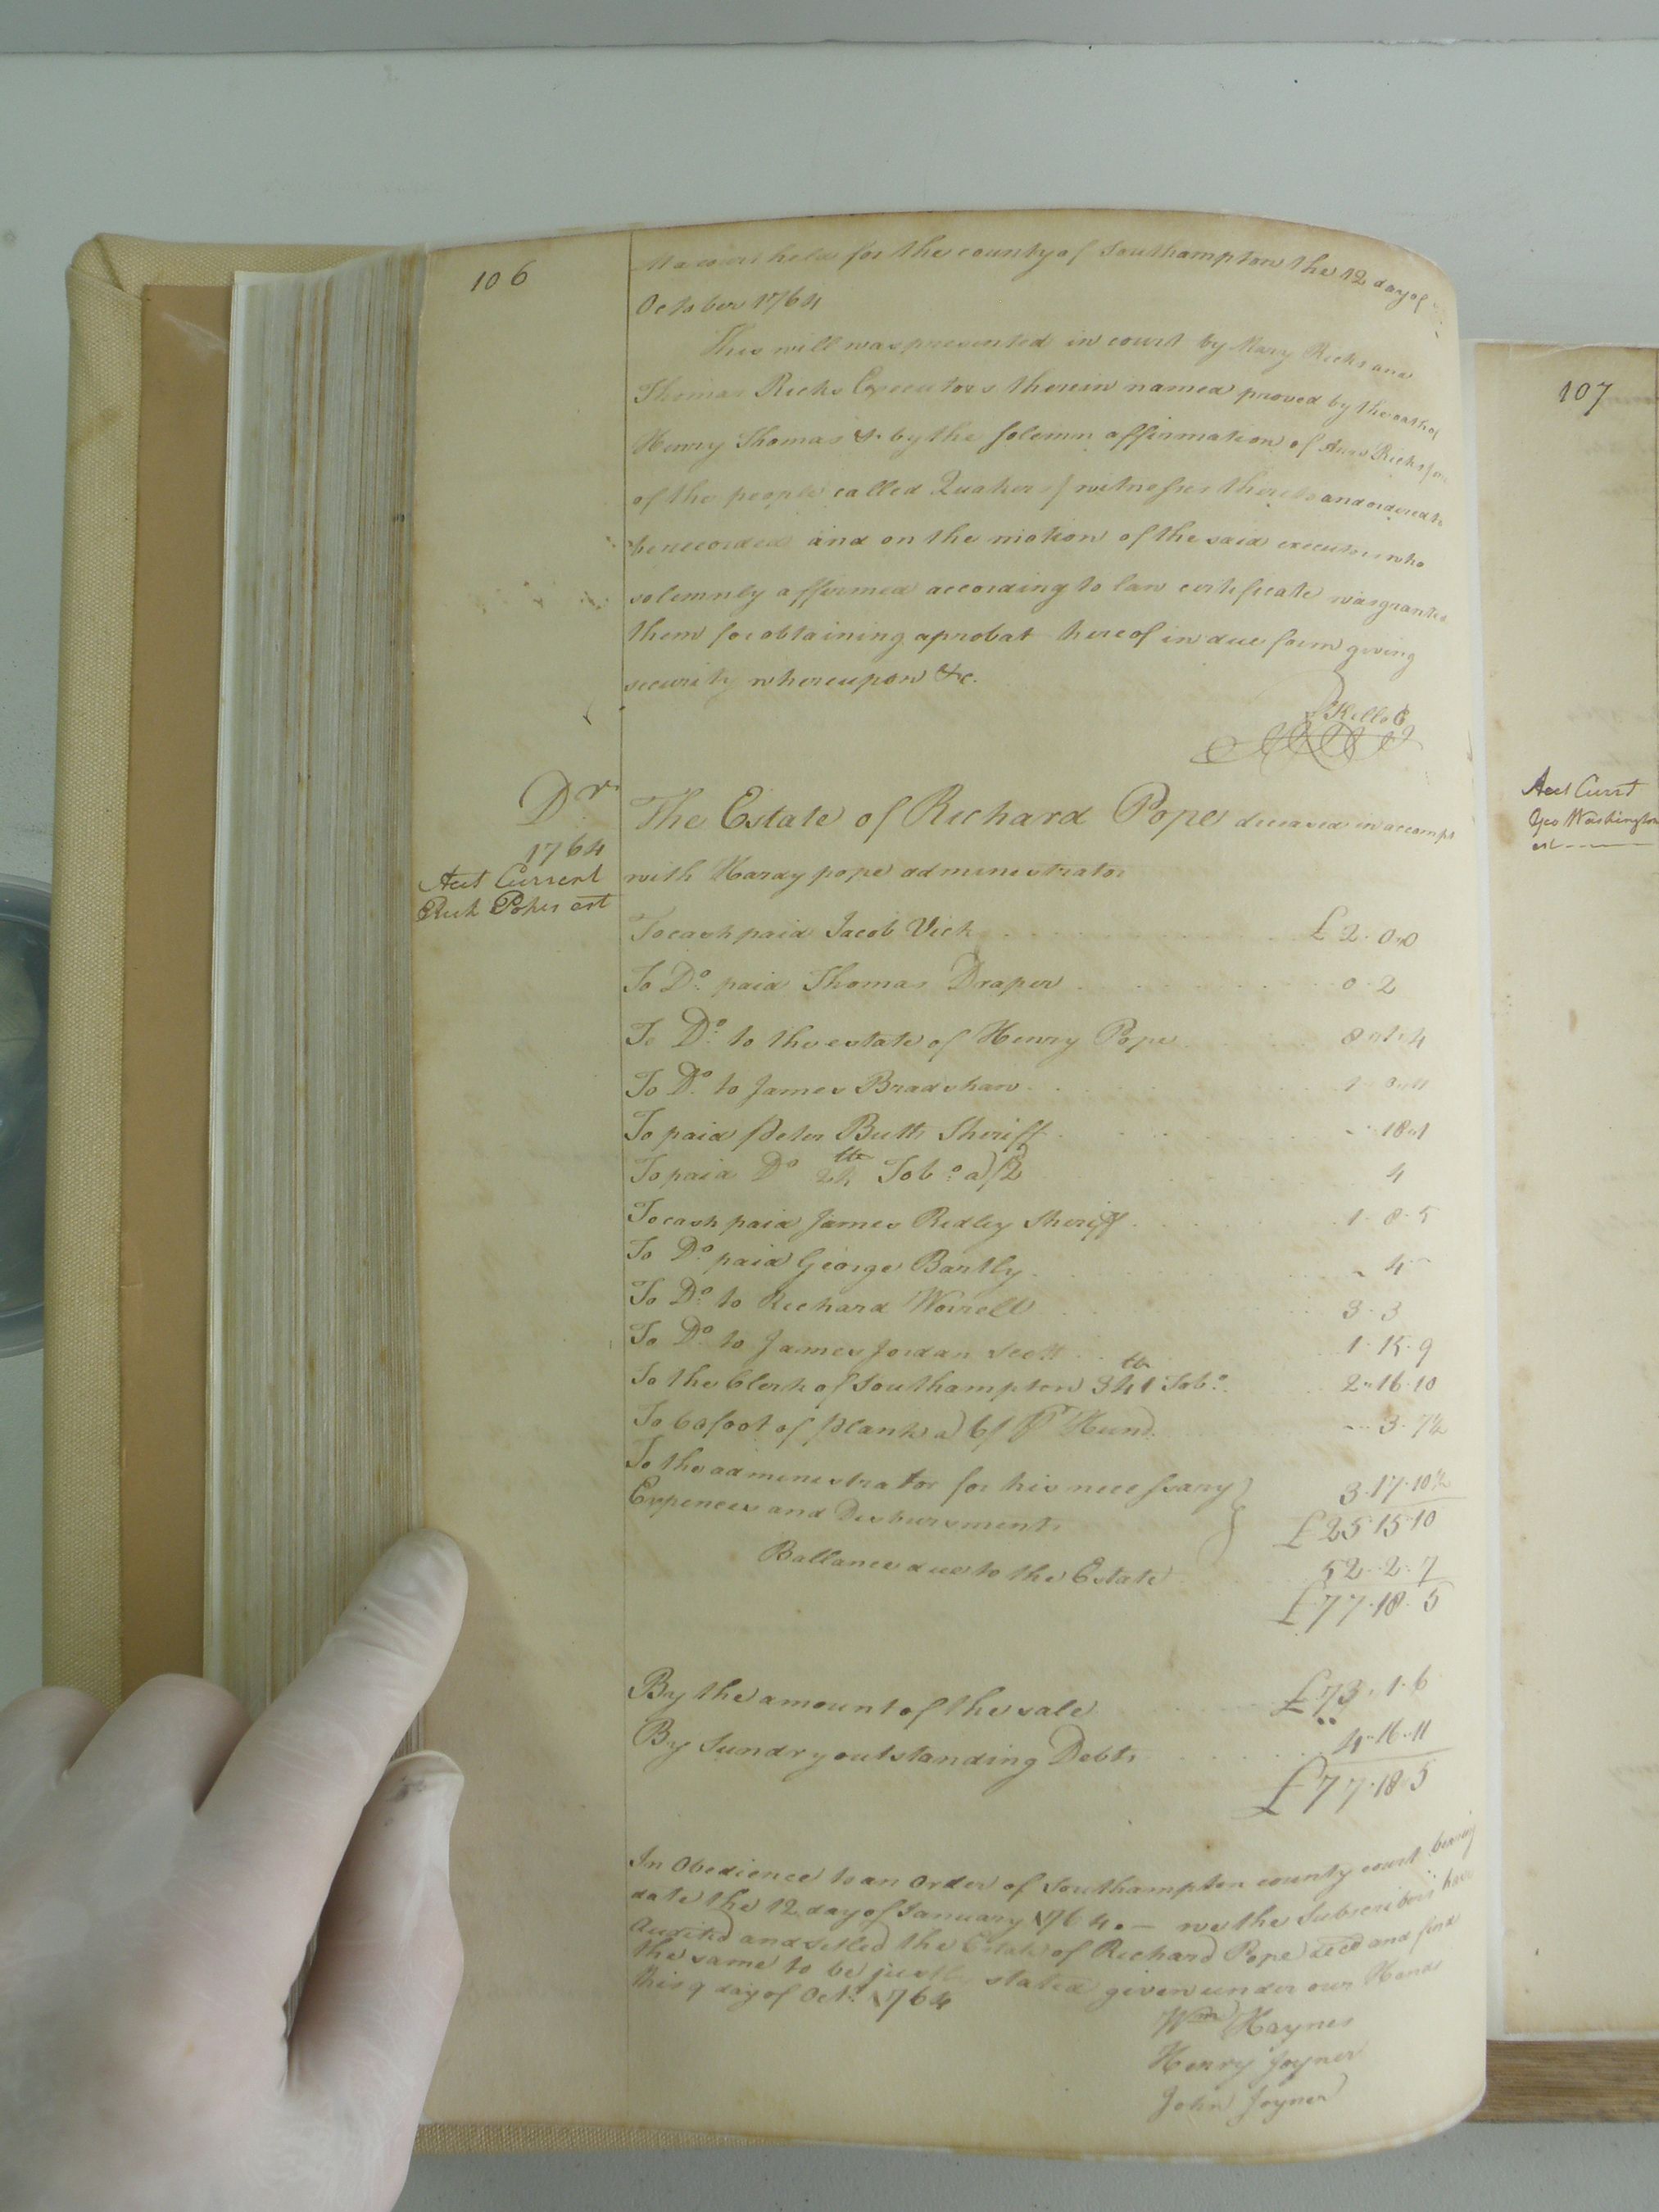 106
At a court held for the county of Southampton the 12 day of
October 1764
This will was presented in court by Mary Ricks and
Thomas Ricks Executors therein named proved by the oath of
Henry Thomas & by the solemn affirmation of Ricks
of the people called Quakers witnesses thereto and ordered to
be recorded and on the motion of the said executors who
solemnly affirmed according to law certificate was granted
them for obtaining a probat hereof in due form giving
security whereupon &c.
Dr
1764
Acct Current
Rich Popes est
The Estate of Richard Pope deceased in accompt
with Hardy pope administrator
To cash paid Jacob Vick £ 2. 0.0
To Do. paid Thomas Draper 0.2
To Do. to the estate of Henry Pope 8..1.4
To Do. to James Bradshaw
To paid Peter Butts Sheriff 18.1
To paid Do 24 lb Tobo. a)/2 4
To cash paid James Ridley Sheriff 1. 8. 5
To Do. paid George Bartly 4
To Do. to Richard Worrell 3. 3
To Do. to James Jordan Scott 1. 15. 9
To the Clerk of Southampton 341 lb Tobo. 2..16.10
To 60 foot of plank a) 6/ P Hund. 3. 7½
To the administrator for his necessary } 3.17.10½
Expences and Disbursments £25.15.10
Ballance due to the Estate 52..2.7
£77.18.5
By the amount of the sale £73.1.6
By Sundry outstanding Debts 4..16..11
£77.18.5
In Obedience to an Order of Southampton county court bearing
date the 12 day of January 1764. — we the Subscribers have
Audited and setled the Estate of Richard Pope decd and find
the same to be justly stated given under our Hands
this 9 day of Oct. 1764
Wm Haynes
Henry Joyner
John Joyner
107
Acct Currt
Geo Washington
est